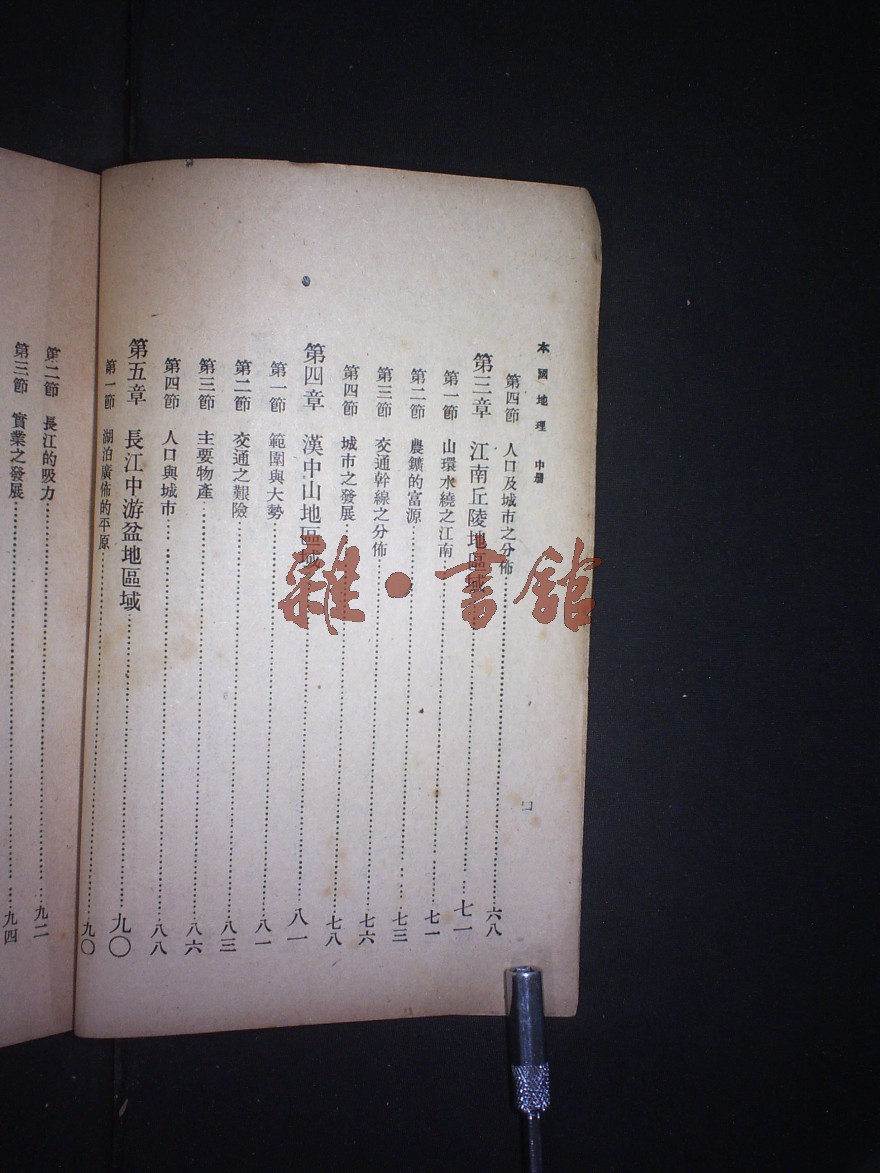 本國地理 中册
第四節 人口及城市之分佈 六八
第三章 江南丘陵地區域 七一
第一節 山環水繞之江南 七一
第二節 農鑛的富源 七三
第三節 交通幹線之分佈 七六
第四節 城市之發展 七八
第四章 漢中山地區域 八一
第一節 範圍與大勢 八一
第二節 交通之艱險 八三
第三節 主要物產 八六
第四節 人口與城市 八八
第五章 長江中游盆地區域 九〇
第一節 湖泊廣佈的平原 九〇
第二節 長江的吸力 九二
第三節 實業之發展 九四
雜·書館